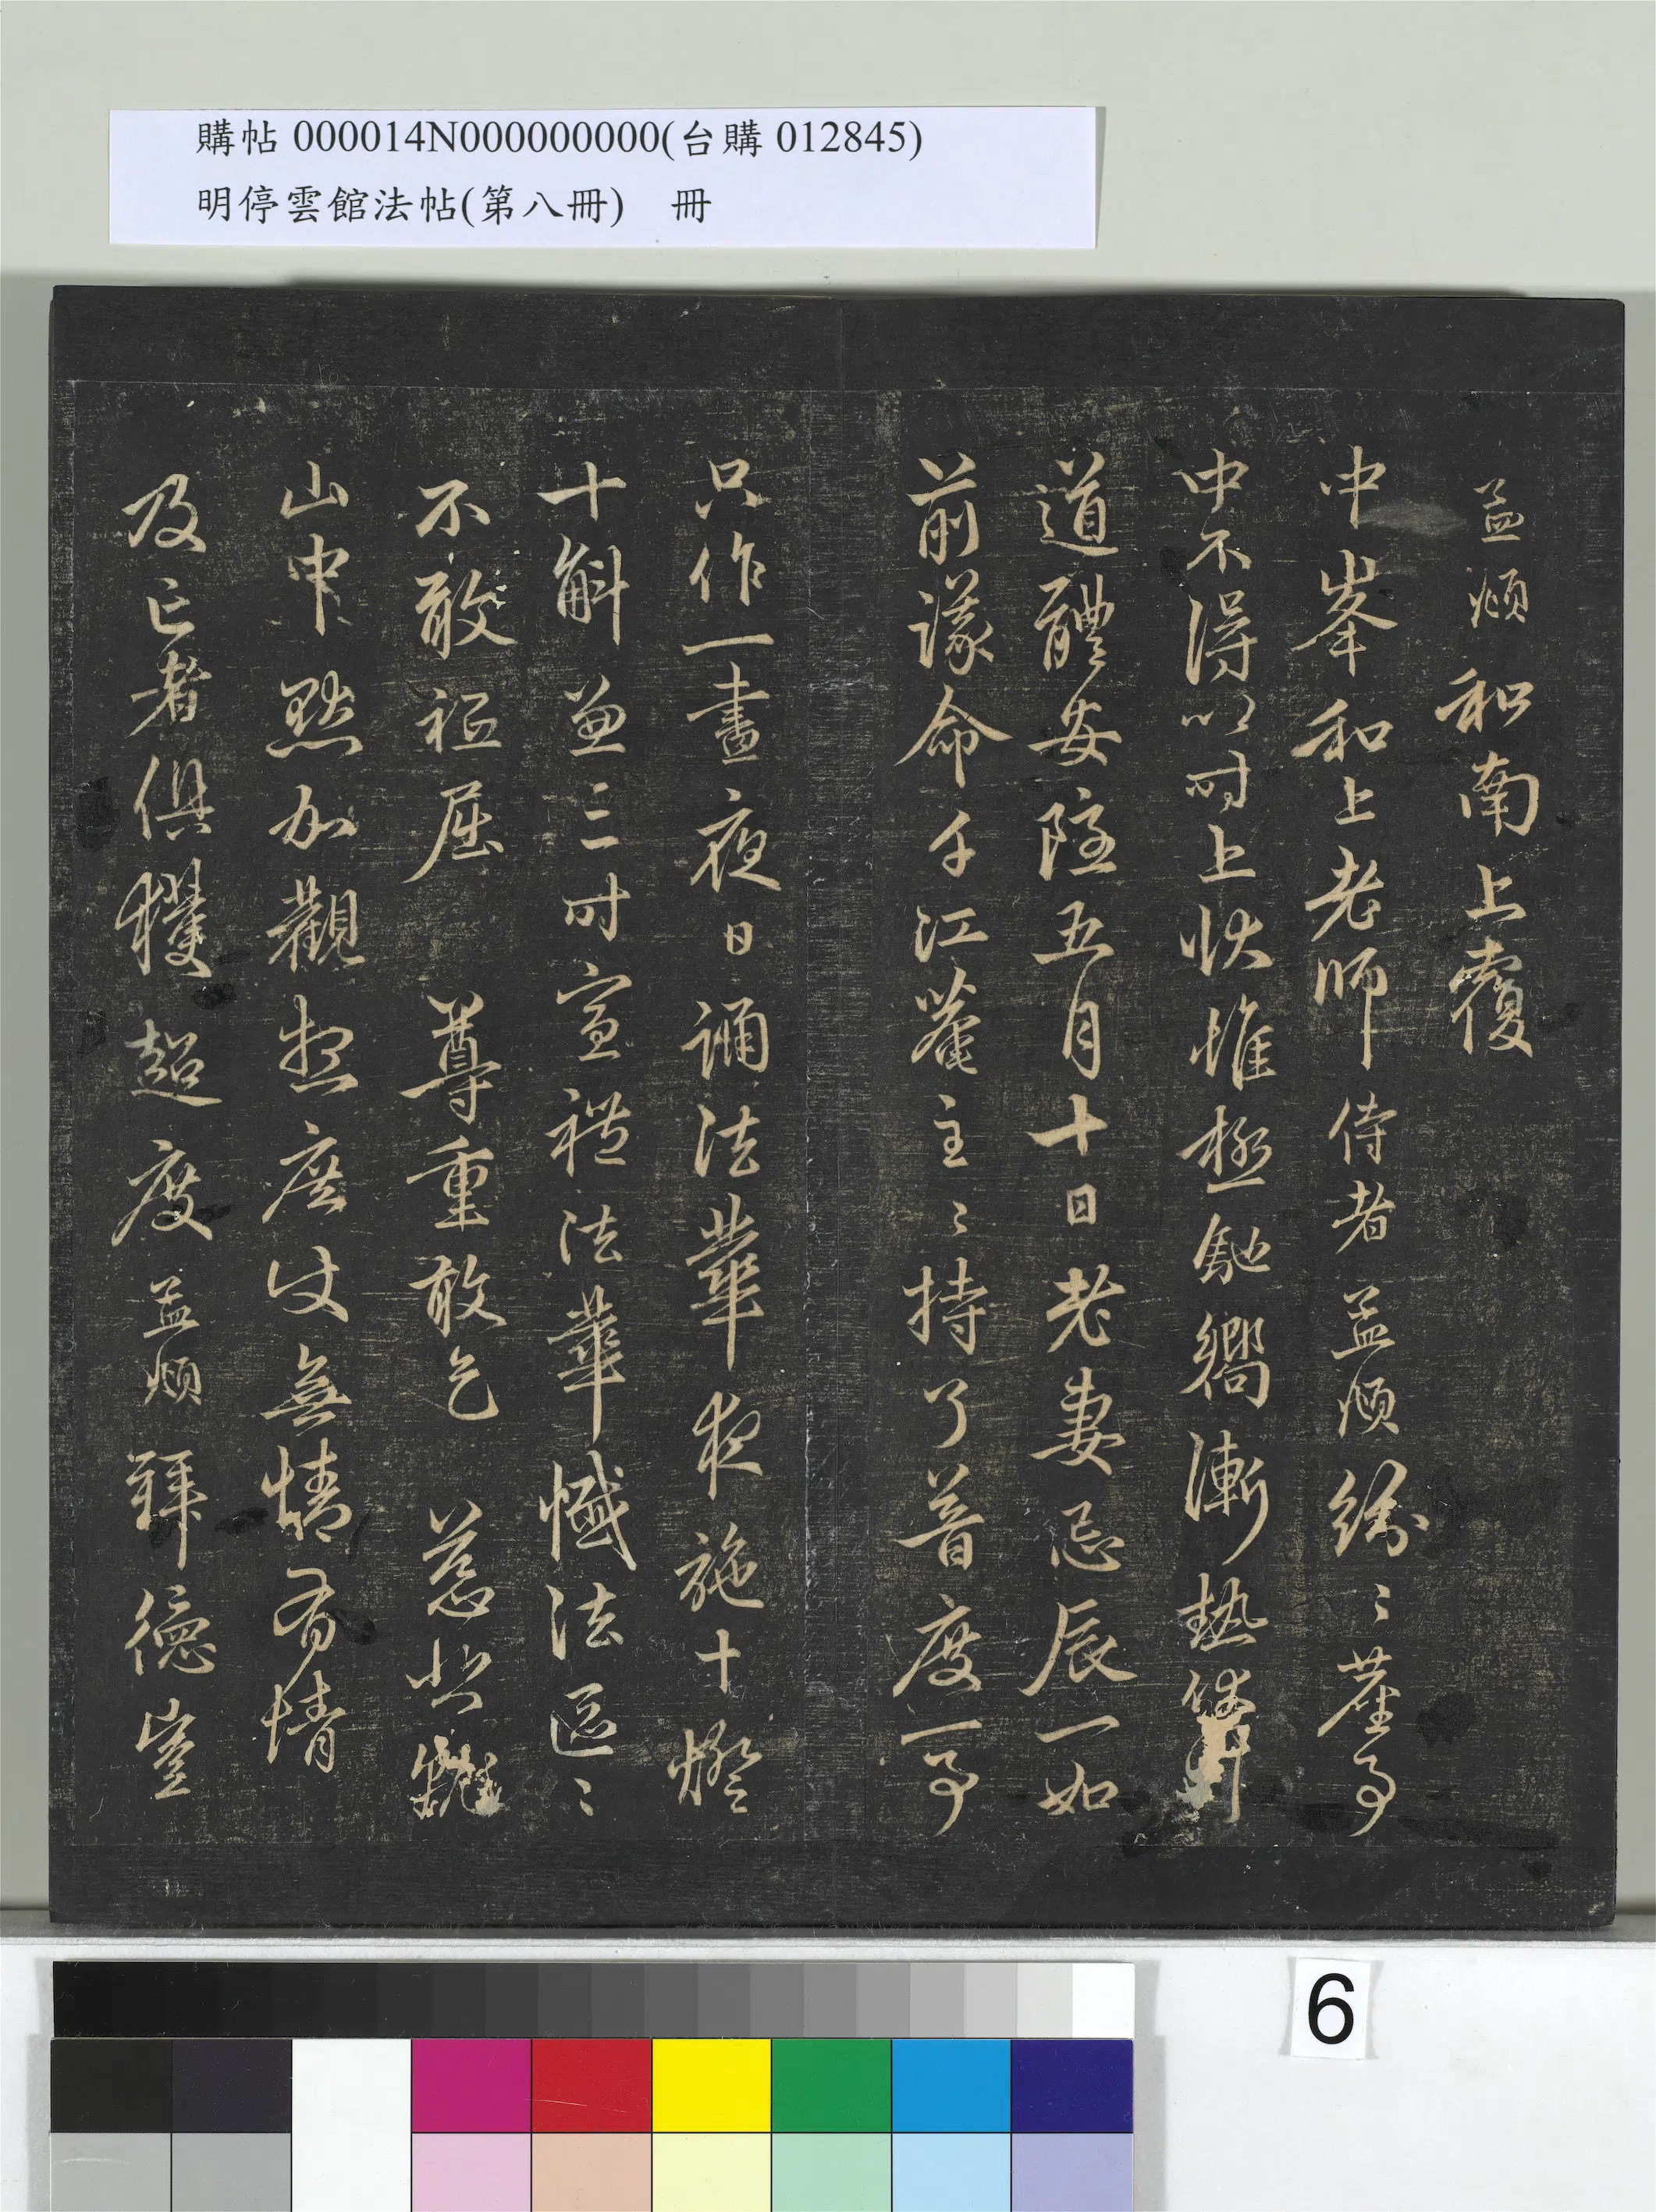 購帖 000014N000000000(台購 012845)
明停雲館法帖(第八冊) 冊
孟頫和南上覆
中峯和上老師侍者孟頫紛〻塵事
中不得以時上狀惟極馳嚮漸熱伏
道體安隱五月十日老妻忌辰一如
前議命千江菴主〻持了普度一事
只作一晝夜日誦法華夜施十燈
十斛并三時宣禮法華懺法區〻
不敢祗屈 尊重敢乞 慈悲就
山中默加觀想庶仗無情有情
及亡者俱獲超度孟頫拜德豈
6